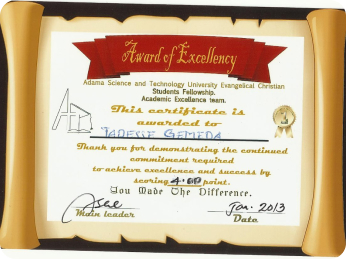 Award of Excellency
Adama Science and Technology University Evangelical Christian
Students Fellowship.
Academic Excellence team.
This certificate is
awarded to
TADESSE GEMEDA
Thank you for demonstrating the continued
commitment required
to achieve excellence and success by
scoring 4.00 point.
You Made The Difference.
Jan. 2013
Main leader
Date